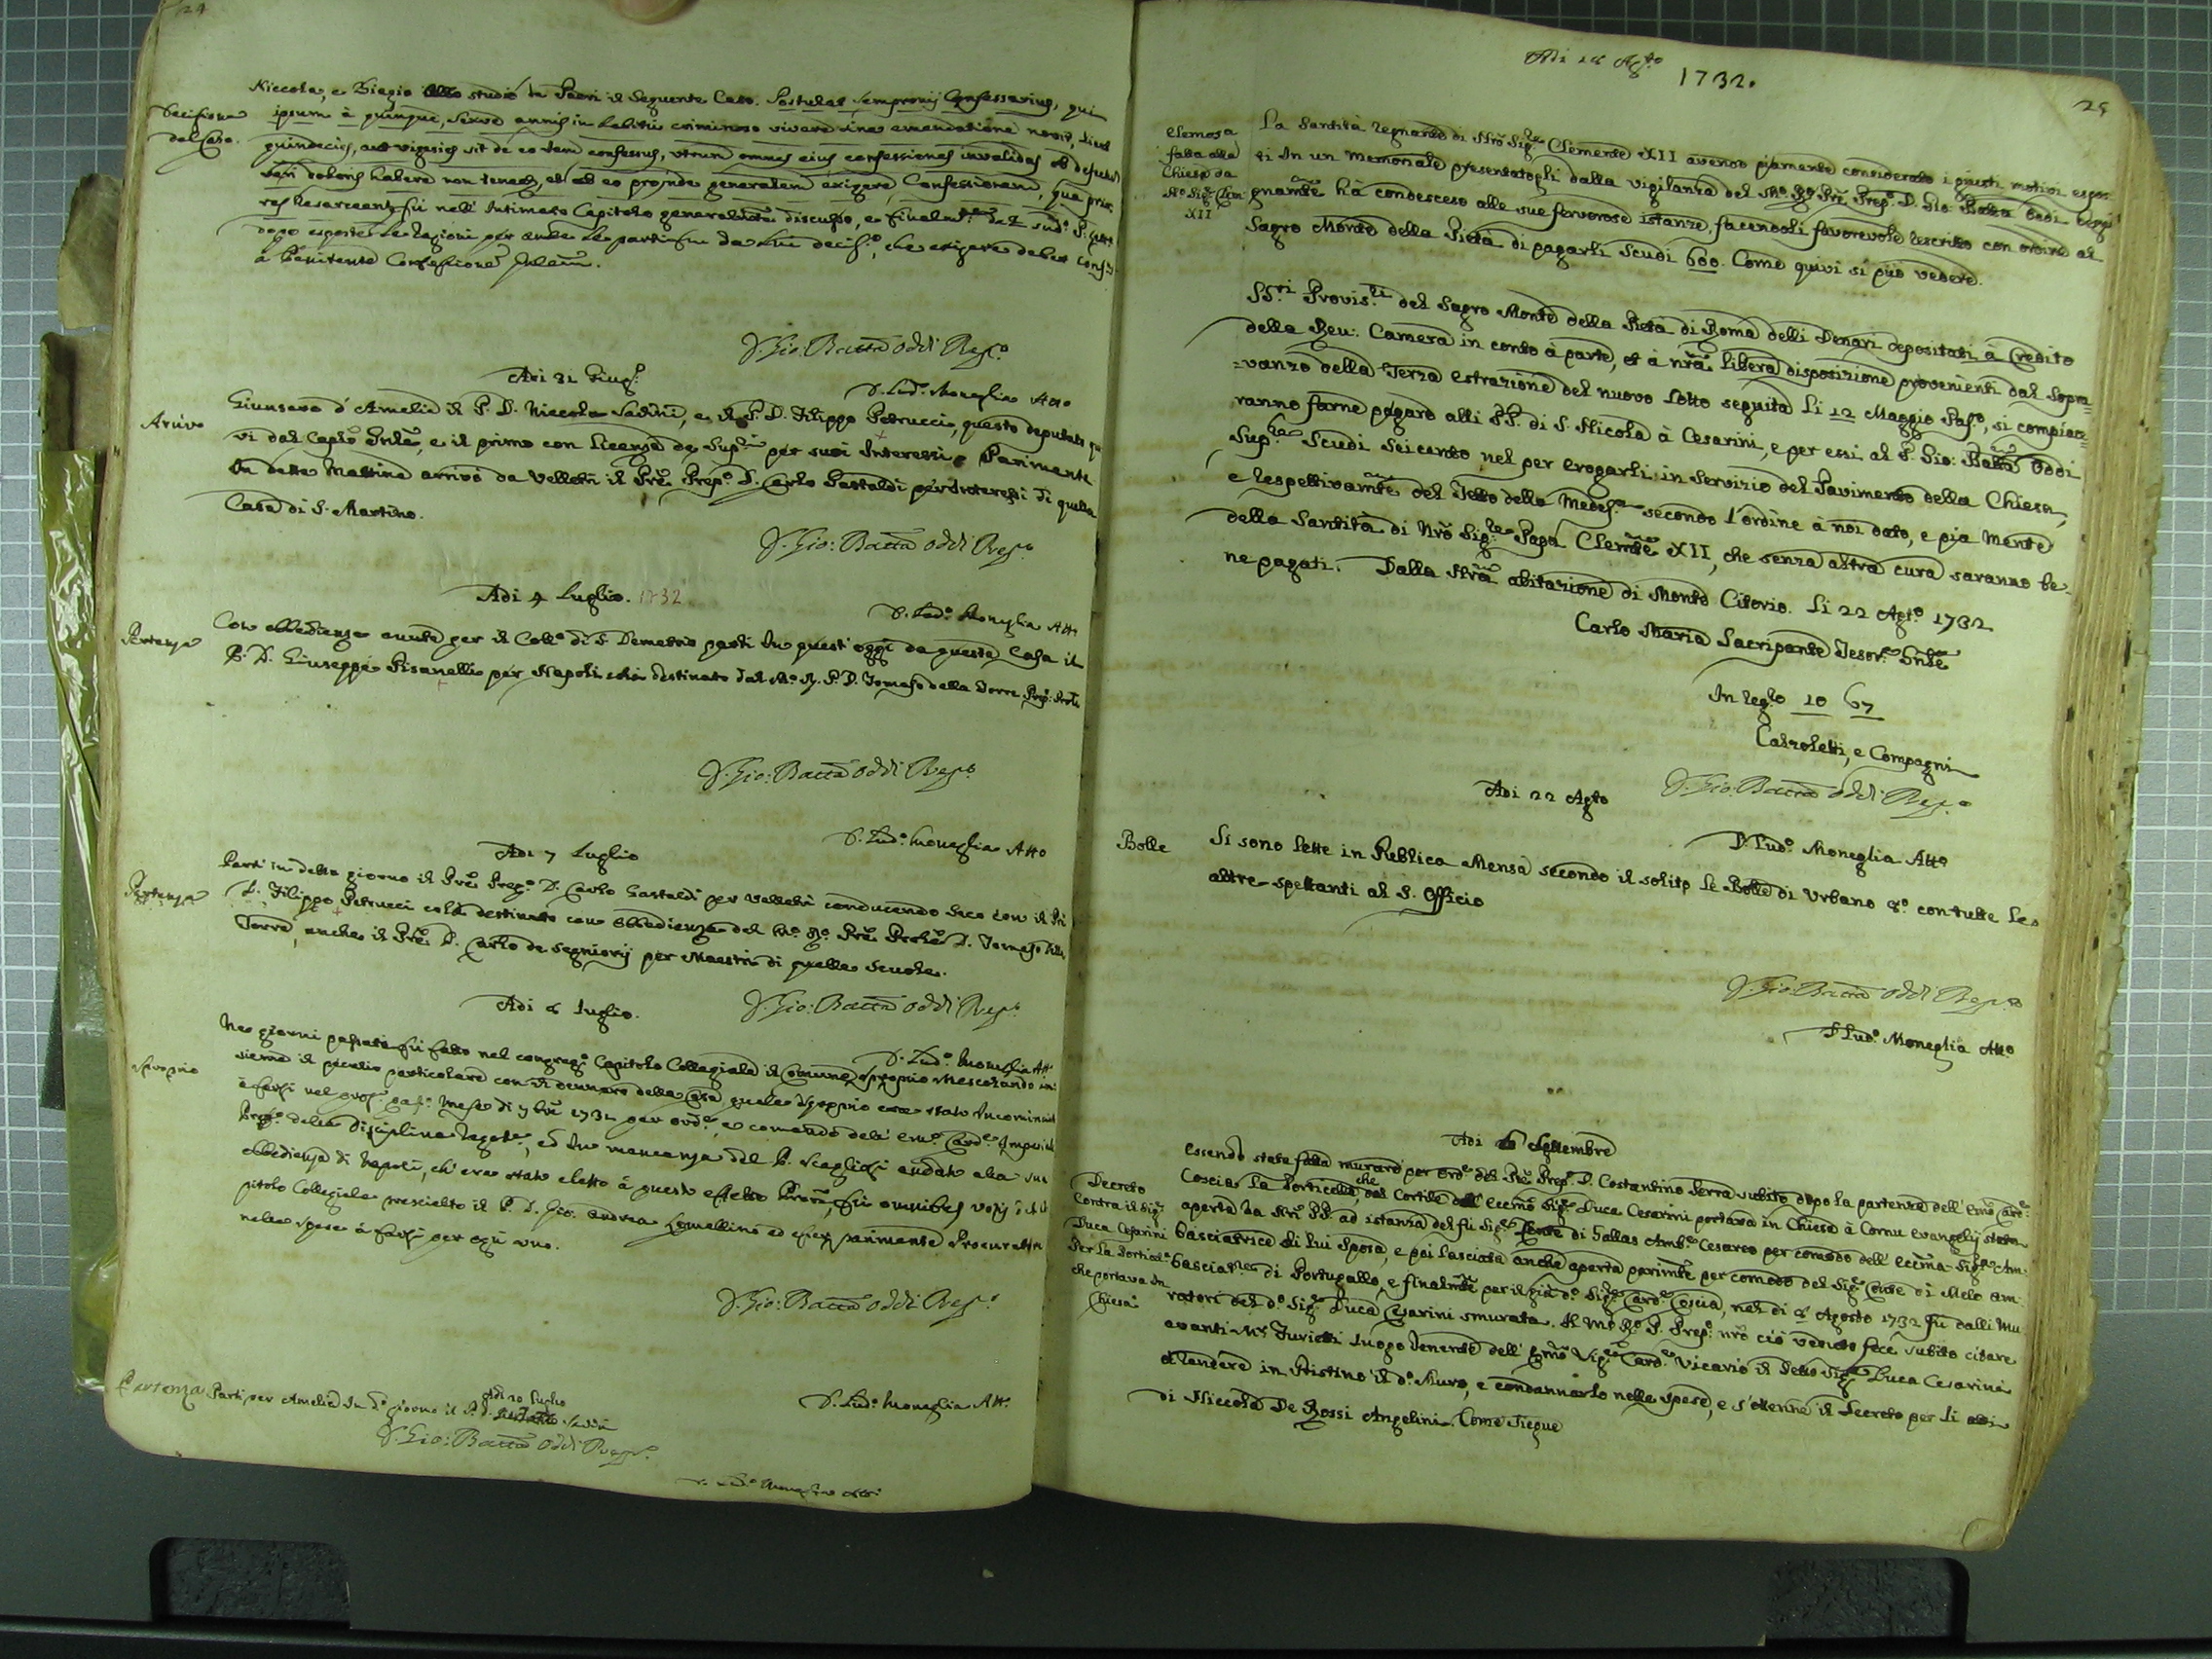 24
Niccola, e Biagio studio da Padri il seguente Caso. Postulat Sempronij Confessarius, qui
Decisione
del Caso.
ipsum à quinque, sexve annis in habitu criminoso vivere sine emendatione novit, licet
quindecies, aut vigesies sit de eo idem confessus, utrum omnes eius confessiones invalidas ob defectum
veri doloris habere non teneat, et ab eo proinde generalem exigere Confessionem, qua prio-
res resarceant, fù nell' Intimato Capitolo
dopo esposte le ragioni per ambe le parti fu da lui deciso, che exigere debet
à Penitente Confessione
D. Gio: Batta Oddi Prep.o
Adi 21 Giug.o
D. Lud.o Moneglia Att.o
Arrivo
Giunsero d'Amelia il P. D. Niccola Sadini, e il P. D. Filippo Petrucci, questo deputato
vi dal Caplo Gnle, e il primo con licenza de Sup.ri per suoi Interessi. Parimente
In detta Mattina arrivò da Velletri il Pre Prep.o D. Carlo Gastaldi per interessi di quella
Casa di S. Martino.
D. Gio: Batta Oddi Prep.o
Adi 4 Luglio. 1732
D. Lud.o Moneglia Att.o
Partenza
Con obbedienza avuta per il Coll.o di S. Demetrio partì In quest' oggi da questa Casa il
P. D. Giuseppe Pisanelli per Napoli colà destinato dal M.o R. P. D. Tomaso della Torre
D. Gio: Batta Oddi Prep.o
D. Lud.o Moneglia Att.o
Adi 7 Luglio
Partenza
Partì in detto giorno il Pre Prep.o D. Carlo Gastaldi per Velletri conducendo seco con il Pre
D. Filippo Petrucci colà destinato con obbedienza del M.o R.o Pre D. Tomaso della
Torre, anche il Pre D. Carlo de Segniorij per Maestri di quelle Scuole.
D. Gio: Batta Oddi Prep.o
Adi 8 Luglio.
D. Lud.o Moneglia Att.o
Spropio
Ne giorni passati fù fatto nel congreg.o Capitolo Collegiale il Comune spropio Mescolando in-
sieme il peculio particolare con il dennaro della Casa quale spropio era stato Incominciato
à farsi nel mese di 7bre 1731 per ord.e, e comando dell' Em.o Card.e Imperiali
Pref.o della Disciplina Regol.e, ed In mancanza del P. Scaglioso andato alla sua
obbedienza di Napoli, ch'era stato eletto à questo effetto fù omnibus votis
pitolo Collegiale prescielto il P. D. Gio: Andrea Lomellino ad esser parimente Procuratore
nelle spese à farsi per ogni uno.
D. Gio: Batta Oddi Prep.o
D. Lud.o Moneglia Att.o
Adi 10 Luglio
Partenza
Partì per Amelia In d.o giorno il P. D. Sadini
D. Gio: Batta Oddi Prep.o
D. Lud.o Moneglia Att.o
Adi 18 Ag.to
1732.
25
Elemosa
fatta alla
Chiesa da
N.o Sig.re Clem
XII
La Santità regnante di Nro Sig.re Clemente XII avendo piamente considerato i giusti motivi espos-
ti In un memoriale presentatogli dalla vigilanza del M.o R.o Pre Prep.o D. Gio: Batta Oddi beni-
gnamte hà condesceso alle sue fervorose istanze, facendoli favorevole rescritto con ordine al
Sagro Monte della Pietà di pagarli Scudi 600. Come quivi si può vedere.
SS.ri Provis.ri del Sagro Monte della Pietà di Roma delli Denari depositati à Credito
della Reu: Camera in conto à parte, et à nra libera disposizione provenienti dal Sopra-
=vanzo della Terza estrazione del nuovo Lotto seguita li 12 Maggio Pas.o, si compiac-
ranno farne pagare alli PP. di S. Nicola à Cesarini, e per essi al P. Gio: Batta Oddi
Sup.re Scudi Seicento nel per erogarli in Servizio del Pavimento della Chiesa,
e respettivamte del Tetto della Medes.a secondo l'ordine à noi dato, e pia Mente
della Santità di Nro Sig.re Papa Clemte XII, che senza altra cura saranno be-
ne pagati. Dalla Nra abitazione di Monte Citorio. Li 22 Ag.to 1732
Carlo Maria Sacripante Tesor.e Gnle
In reg.o 10 67
e Compagni
D. Gio: Batta Oddi Prep.o
Adi 22 Agto
D. Lud.o Moneglia Att.o
Bolle
Si sono lette in Publica Mensa secondo il solito le Bolle di Urbano 8.o con tutte le
altre spettanti al S. Officio
D. Gio: Batta Oddi Prep.o
D. Lud.o Moneglia Att.o
Adi 6 Settembre
Decreto
Contra il Sig.r
Duca Cesarini
Per la Porticella
che portava In
Chiesa
Essendo stata fatta murare per ord.e del Pre Prep.o D. Costantino Serra subito dopo la partenza dell' Emo Card.e
Coscia la Porticella, che dal Cortile dell' Eccmo Sig.r Duca Cesarini portava in Chiesa à Cornu Evangelij stata
aperta da Nri PP. ad istanza del fù Sig.r Conte di Gallas Amb.re Cesareo per comodo dell' Eccma Sig.ra Am-
basciatrice di lui Sposa, e poi lasciata anche aperta parimte per comodo del Sig.r Conte di Melo Am-
basciat.re di Portugallo, e finalmte per il già d.o Sig.r Card.e Coscia, nel di 8 Agosto 1732 fù dalli Mu-
ratori del d.o Sig.r Duca Cesarini smurata. Il M.o R.o P. Prep.o nro ciò veduto fece subito citare
avanti M.r Furietti luogo Tenente dell' Emo Sig.r Card.e Vicario il detto Sig.r Duca Cesarini
à rendere in Pristino il d.o Muro, e condannarlo nelle spese, e s'ottenne il Decreto per li atti
di Niccola De Rossi Angelini. Come siegue